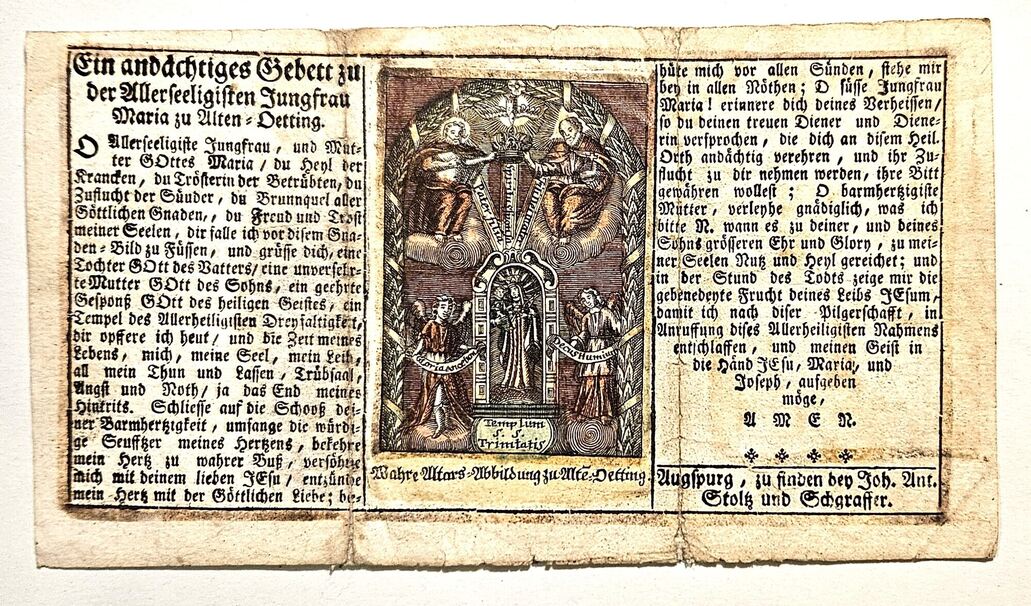 Ein andächtiges Gebett zu
der Allerseeligisten Jungfrau
Maria zu Alten-Oetting.
O Allerseeligiste Jungfrau, und Mut-
ter GOttes Maria / du Heyl der
Krancken, du Trösterin der Betrübten, du
Zuflucht der Sünder, du Brunnquel aller
Göttlichen Gnaden,, du Freud und Trost
meiner Seelen, dir falle ich vor disem Gna-
den-Bild zu Füssen, und grüsse dich, eine
Tochter GOtt des Vatters / eine unversehr-
te Mutter GOtt des Sohns, ein geehrte
Gesponß GOtt des heiligen Geistes, ein
Tempel des Allerheiligisten Dreyfaltigkeit,
dir opffere ich heut / und die Zeit meines
Lebens, mich, meine Seel, mein Leib,
all mein Thun und Lassen, Trübsaal,
Angst und Noth / ja das End meines
Hintrits. Schliesse auf die Schooß dei-
ner Barmhertzigkeit, umfange die würdi-
ge Seufftzer meines Hertzens, bekehre
mein Hertz zu wahrer Buß, versöhne
mich mit deinem lieben JEsu / entzünde
mein Hertz mit der Göttlichen Liebe; be-
Templum
S. S.
Trinitatis
Wahre Altars-Abbildung zu Alte-Oetting.
hüte mich vor allen Sünden, stehe mir
bey in allen Nöthen; O süsse Jungfrau
Maria! erinnere dich deines Verheissen /
so du deinen treuen Diener und Diene-
rin versprochen, die dich an disem Heil.
Orth andächtig verehren, und ihr Zu-
flucht zu dir nehmen werden, ihre Bitt
gewähren wollest; O barmhertzigiste
Mutter, verleyhe gnädiglich, was ich
bitte N. wann es zu deiner, und deines
Sohns grösseren Ehr und Glory, zu mei-
ner Seelen Nutz und Heyl gereichet; und
in der Stund des Todts zeige mir die
gebenedeyte Frucht deines Leibs JEsum,
damit ich nach diser Pilgerschafft, in
Anruffung dises Allerheiligisten Nahmens
entschlaffen, und meinen Geist in
die Händ JEsu, Maria, und
Joseph, aufgeben
möge,
A M E N.
Augspurg, zu finden bey Joh. Ant.
Stoltz und Schgraffer.